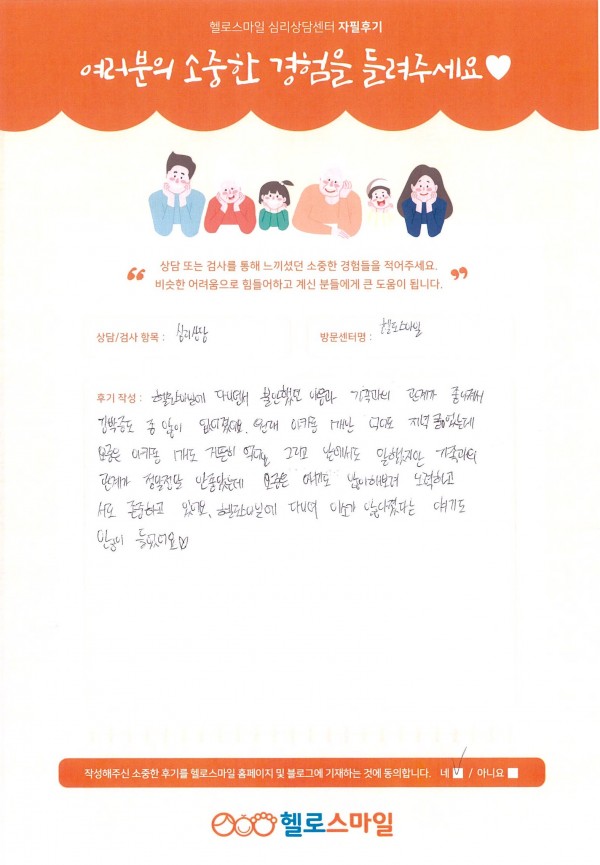 헬로스마일 심리상담센터 자필후기
여러분의 소중한 경험을 들려주세요♥
“ 상담 또는 검사를 통해 느끼셨던 소중한 경험들을 적어주세요.
비슷한 어려움으로 힘들어하고 계신 분들에게 큰 도움이 됩니다. ”
상담/검사 항목 : 심리상담
방문센터명 : 헬로스마일
후기 작성 : 헬로스마일에 다니면서 불안했던 마음과 가족과의 관계가 좋아져서
강박증도 좀 많이 없어졌어요. 원래 마카롱
요즘은 마카롱 1개도 거뜬히 먹어요. 그리고 앞에서도 말했지만 가족과의
관계가 정말전만 안좋았는데 요즘은 이해도 많이해보려 노력하고
서로 존중하고 있어요. 헬로스마일에 다니며 이보가 많아졌다는 얘기도
많이 들었어요♡
작성해주신 소중한 후기를 헬로스마일 홈페이지 및 블로그에 기재하는 것에 동의합니다. 네 ☑ / 아니요 ☐
헬로스마일